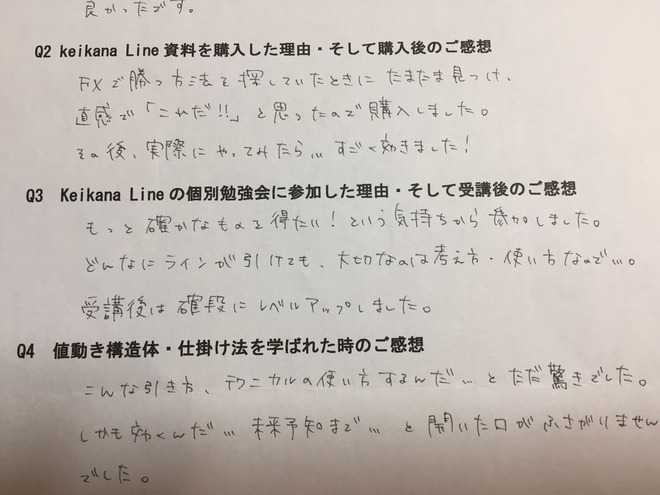 良かったです。
Q2 keikana Line 資料を購入した理由・そして購入後のご感想
FXで勝つ方法を探していたときに たまたま見つけ、
直感で「これだ!!」と思ったので購入しました。
その後、実際にやってみたら… すごく効きました!
Q3 Keikana Line の個別勉強会に参加した理由・そして受講後のご感想
もっと確かなものを得たい!という気持ちから参加しました。
どんなにラインが引けても、大切なのは考え方・使い方なので…。
受講後は確段にレベルアップしました。
Q4 値動き構造体・仕掛け法を学ばれた時のご感想
こんな引き方、テクニカルの使い方するんだ… とただ驚きでした。
しかも効くんだ… 未来予知まで… と開いた口がふさがりません
でした。